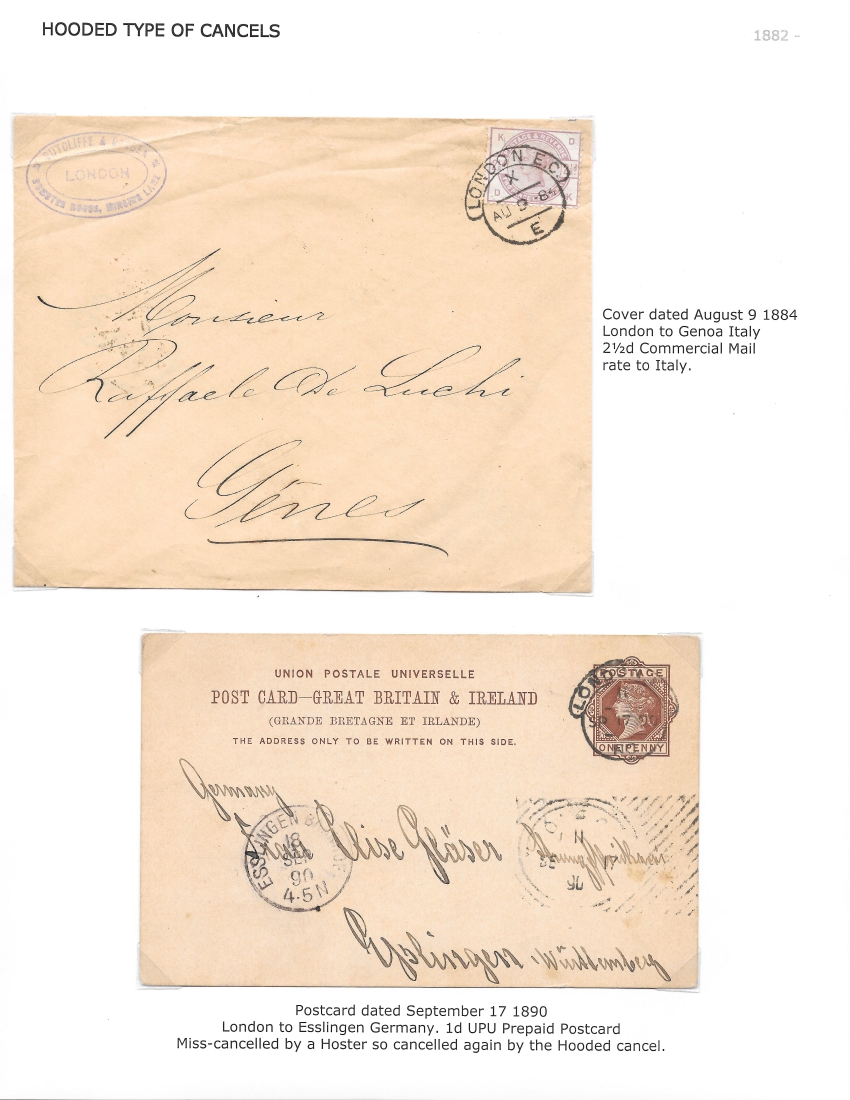 HOODED TYPE OF CANCELS
1882 -
SUTCLIFFE &
LONDON
HOUSE, MINCING LANE
K D
POSTAGE & REVENUE
D K
LONDON E.C.
X
AU 9 -84
E
Monsieur
Raffaele De Luchi
Gênes
Cover dated August 9 1884
London to Genoa Italy
2½d Commercial Mail
rate to Italy.
UNION POSTALE UNIVERSELLE
POST CARD—GREAT BRITAIN & IRELAND
(GRANDE BRETAGNE ET IRLANDE)
THE ADDRESS ONLY TO BE WRITTEN ON THIS SIDE.
POSTAGE
ONE PENNY
LON
SP 17 90
Germany
Elise Gläser
ESSLINGEN
18
SEP
90
4-5 N
90
Esslingen, Württemberg
Postcard dated September 17 1890
London to Esslingen Germany. 1d UPU Prepaid Postcard
Miss-cancelled by a Hoster so cancelled again by the Hooded cancel.